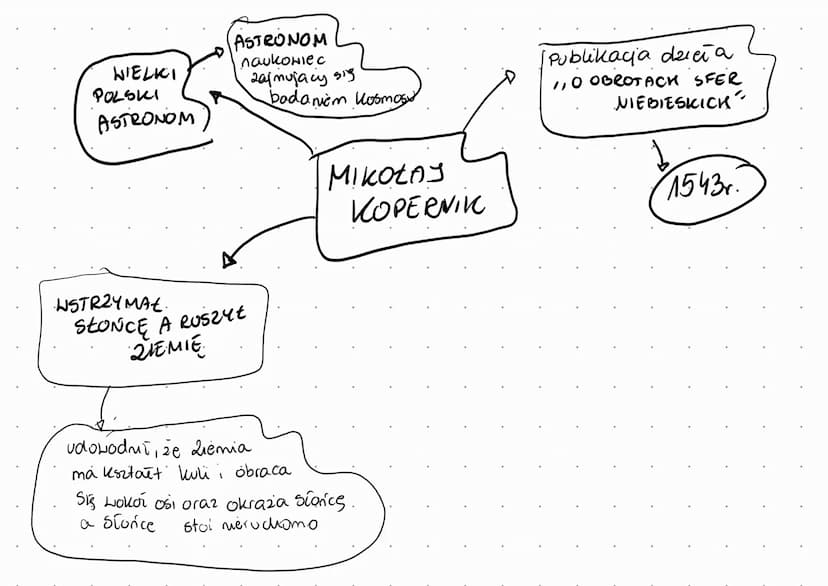 WIELKI
POLSKI
ASTRONOM
ASTRONOM
naukowiec
zajmujący się
badaniem kosmosu
Publikacja dzieła
„O OBROTACH SFER
NIEBIESKICH"
1543r.
MIKOŁAJ
KOPERNIK
WSTRZYMAŁ
SŁOŃCĘ A RUSZYŁ
ZIEMIĘ
udowodnił, że Ziemia
ma kształt kuli i obraca
się wokół osi oraz okrąża Słońce
a Słońce stoi nieruchomo